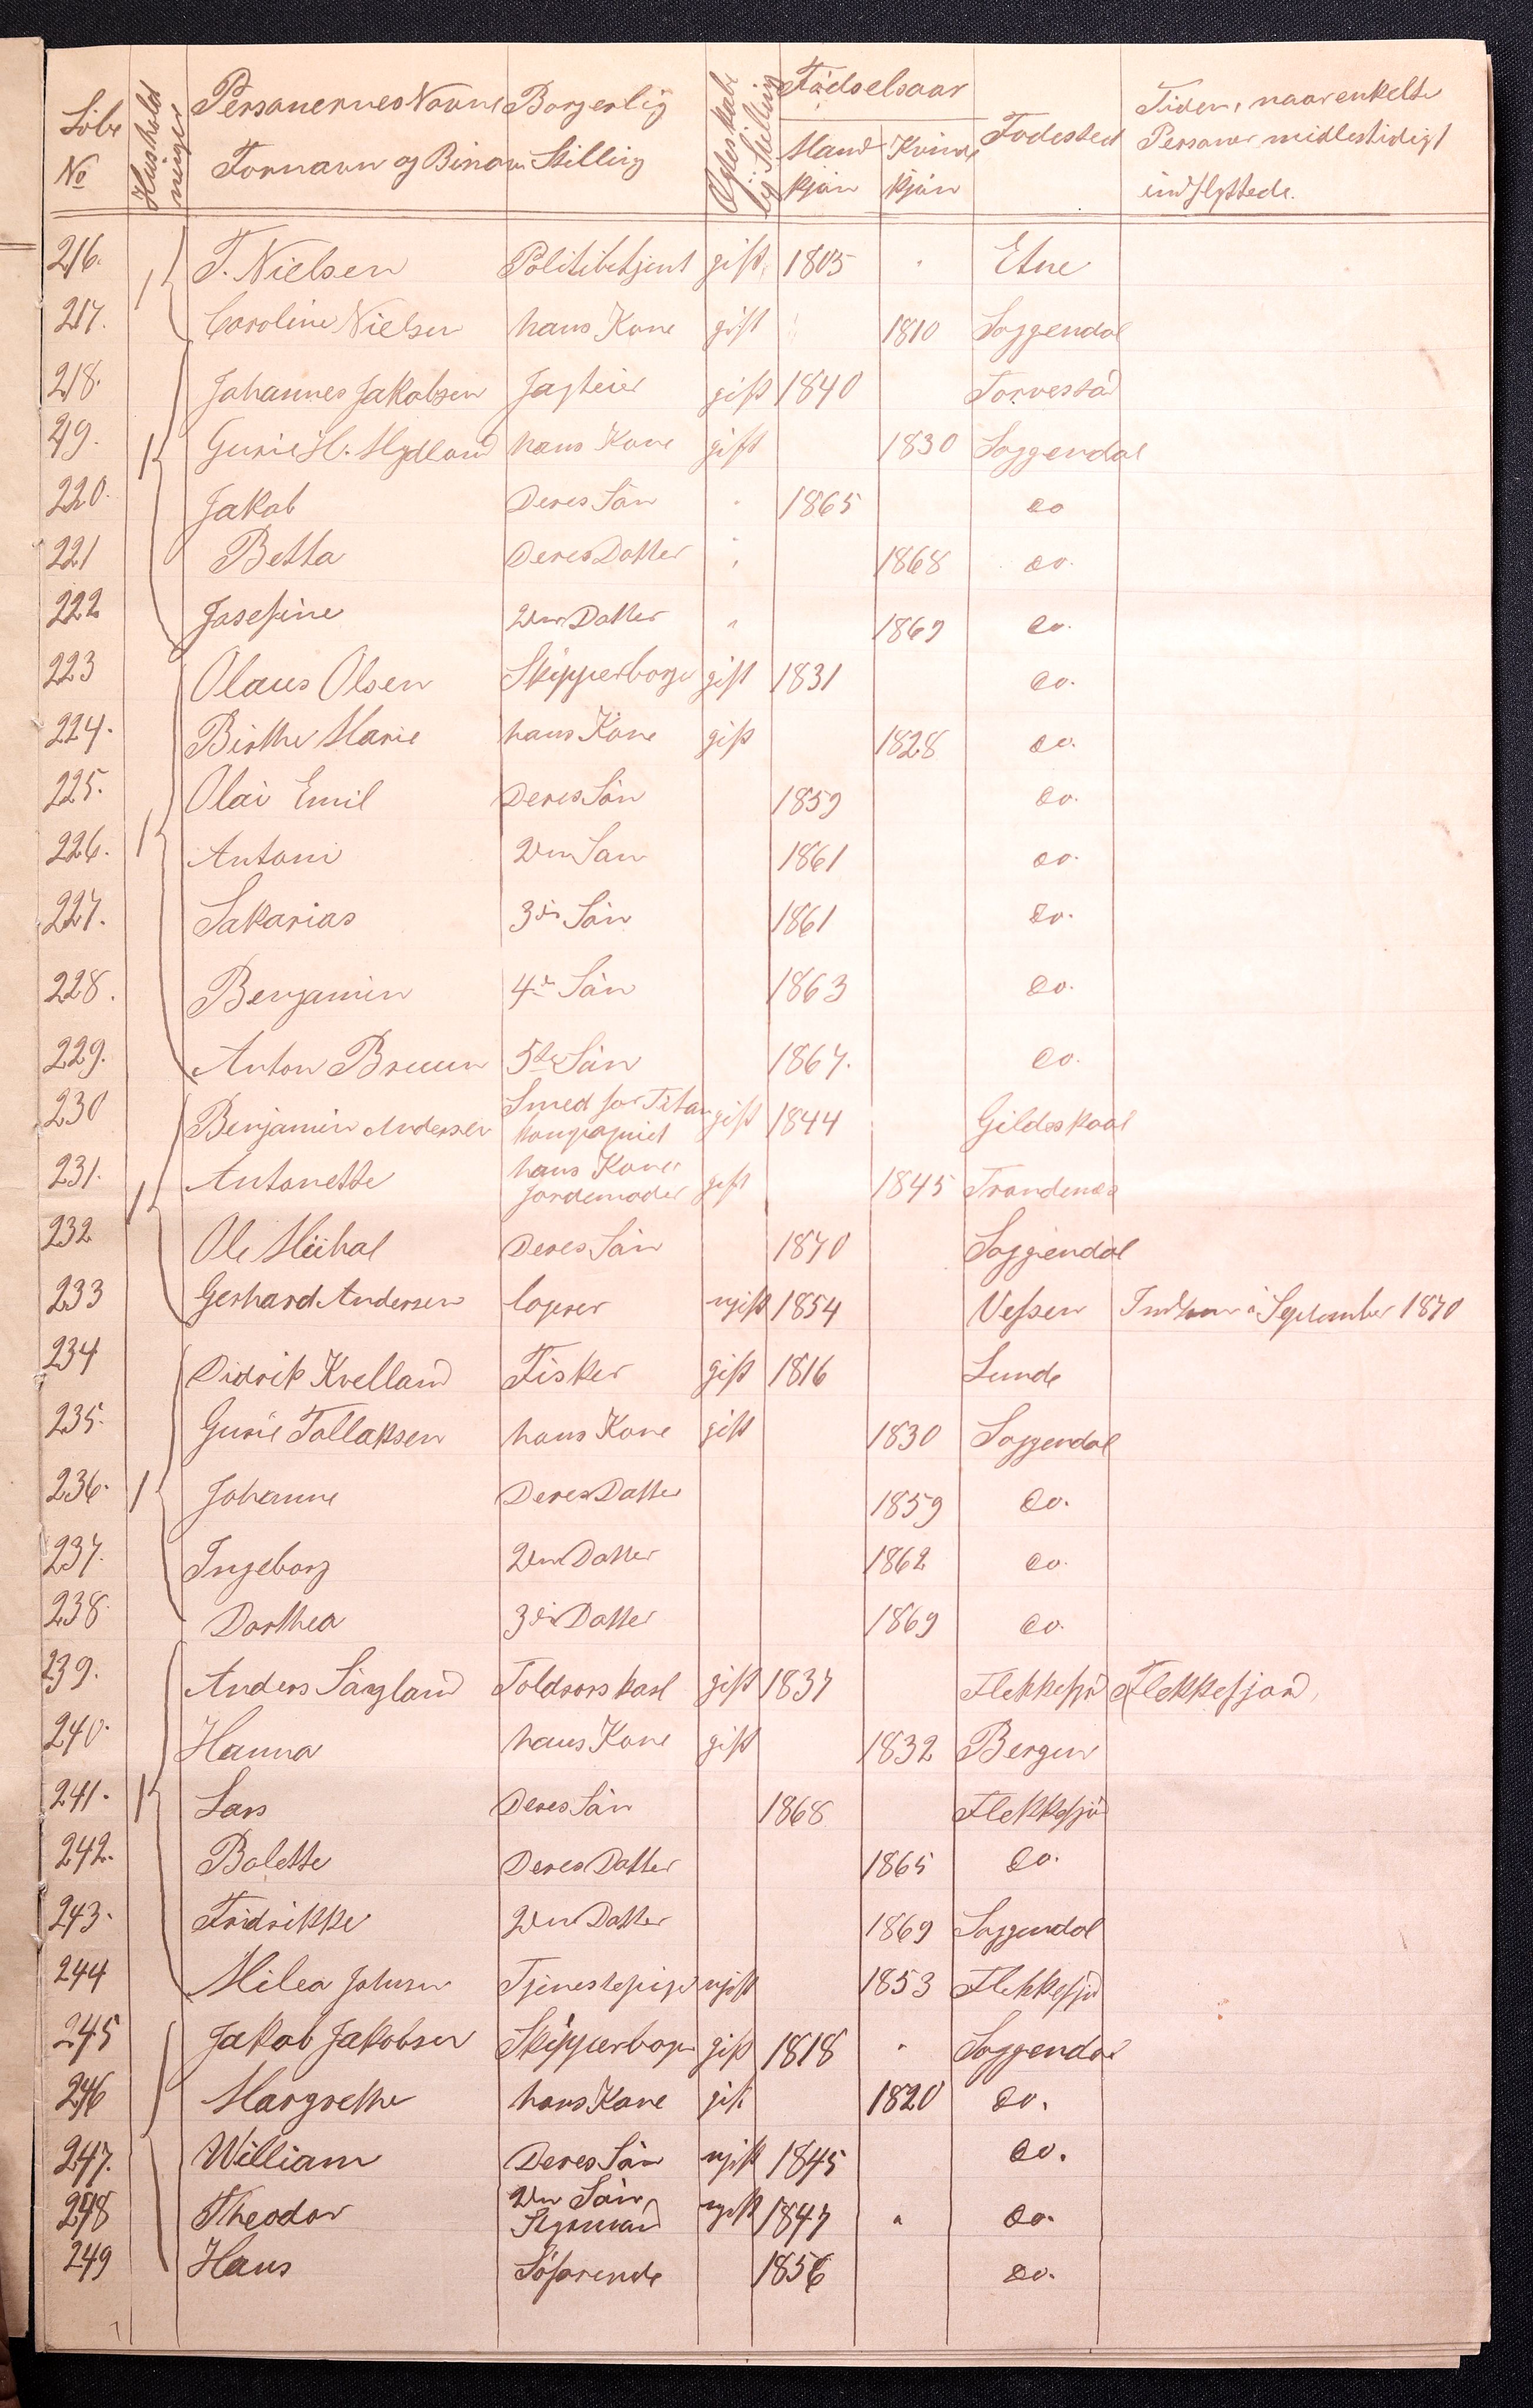 Löbe No Husholdninger Personernes Navne Fornavn og Binavn Borgerlig Stilling Ægteskabelig Stilling Födselsaar Mandkjön Kvindekjön Födested Tiden, naar enkelte Personer midlestidigt indflyttede.
216. T. Nielsen Politibetjent gift 1805 " Etne
217. Caroline Nielsen hans Kone gift 1810 Soggendal
218. Johannes Jakobsen Jagteier gift 1840 Torvestad
219. Gurie H. Mydland hans Kone gift 1830 Soggendal
220. Jakob Deres Sön " 1865 do
221 Betta Deres Datter " 1868 do.
222 Josefine 2den Datter " 1869 do.
223 Olaus Olsen Skipperborger gift 1831 do.
224. Birthe Marie hans Kone gift 1828 do.
225. Olai Emil Deres Sön 1859 do.
226. Antoni 2den Sön 1861 do.
227. Sakarias 3die Sön 1861 do.
228. Benjamin 4de Sön 1863 do.
229. Anton Bruun 5te Sön 1867. do.
230 Benjamin Andersen Smed for Titan kompagniet gift 1844 Gildeskaal
231. Antonette hans Kone Jordemoder gift 1845 Trondenæs
232 Ole Mikal Deres Sön 1870 Soggendal
233 Gerhard Andersen ugift 1854 Vefsen Indkom i September 1870
234 Didrik Kvelland Fisker gift 1816 Lunde
235. Gurie Tollaksen hans Kone gift 1830 Soggendal
236. Johanne Deres Datter 1859 do.
237. Ingeborg 2den Datter 1862 do.
238. Dorthea 3die Datter 1869 do.
239. Anders Sögland Toldrorskarl gift 1837 Flekkefjord Flekkefjord
240. Hanna hans Kone gift 1832 Bergen
241. Lars Deres Sön 1868 Flekkefjo
242. Bolette Deres Datter 1865 do.
243. Fridrikke 2den Datter 1869 Soggendal
244 Milea Johnsen Tjenestepige ugift 1853 Flekkefjo
245 Jakob Jakobsen Skipperborger gift 1818 " Soggendal
246 Margrethe hans Kone gift 1820 do.
247. William Deres Sön ugift 1845 do.
248 Theodor 2den Sön, Styrmand ugift 1847 " do.
249 Hans Söfarende 1856 do.